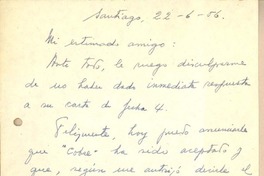 Santiago, 22-6-56.
Mi estimado amigo:
Ante todo, le ruego disculparme
de no haber dado inmediata respuesta
a su carta de fecha 4.
Felizmente, hoy puedo anunciarle
que "Cobre" ha sido aceptado y
que, según me autorizó decirle el